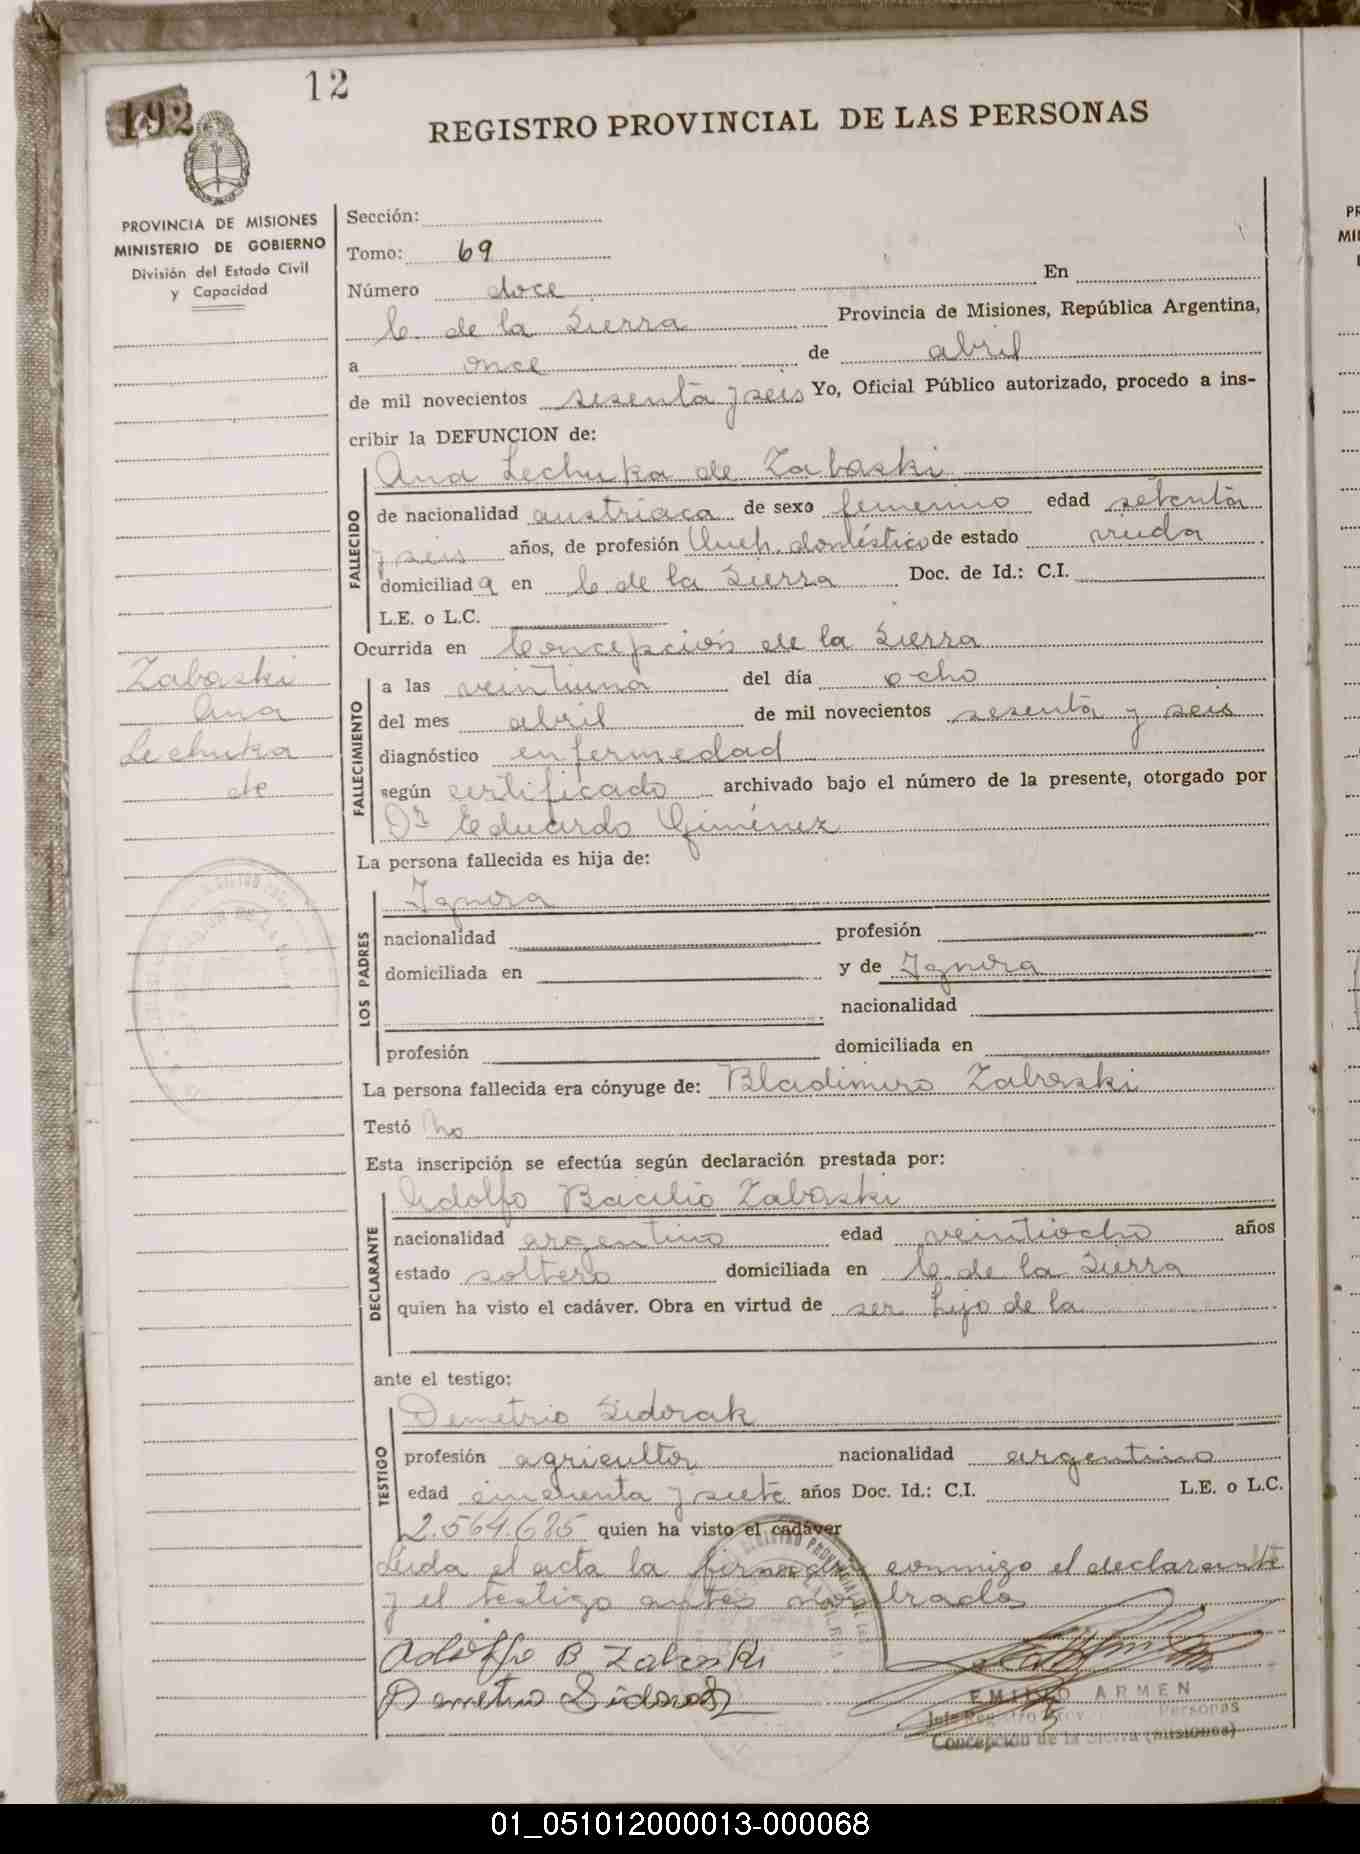 12
192
REGISTRO PROVINCIAL DE LAS PERSONAS
PROVINCIA DE MISIONES
MINISTERIO DE GOBIERNO
División del Estado Civil
y Capacidad
Sección:
Tomo: 69
Número doce En
C. de la Sierra Provincia de Misiones, República Argentina,
a once de abril
de mil novecientos sesenta y seis Yo, Oficial Público autorizado, procedo a ins-
cribir la DEFUNCION de:
FALLECIDO
Ana Lechuka de Zaboski
de nacionalidad austriaca de sexo femenino edad setenta
y seis años, de profesión Queh. doméstico de estado viuda
domiciliada en C. de la Sierra Doc. de Id.: C.I.
L.E. o L.C.
Ocurrida en Concepción de la Sierra
FALLECIMIENTO
a las veintiuna del día ocho
del mes abril de mil novecientos sesenta y seis
diagnóstico enfermedad
según certificado archivado bajo el número de la presente, otorgado por
Dr Eduardo Giménez
Zaboski
Ana
Lechuka
de
La persona fallecida es hija de:
LOS PADRES
Ignora
nacionalidad profesión
domiciliada en y de Ignora
nacionalidad
profesión domiciliada en
La persona fallecida era cónyuge de: Bladimiro Zaboski
Testó No
Esta inscripción se efectúa según declaración prestada por:
DECLARANTE
Adolfo Bacilio Zaboski
nacionalidad argentino edad veintiocho años
estado soltero domiciliada en C. de la Sierra
quien ha visto el cadáver. Obra en virtud de ser hijo de la
ante el testigo:
TESTIGO
Demetrio Sidorak
profesión agricultor nacionalidad argentino
edad cincuenta y siete años Doc. Id.: C.I. L.E. o L.C.
2.564.685 quien ha visto el cadáver
Leida el acta la firmada conmigo el declarante
y el testigo antes nombrados
Adolfo B Zaboski
Demetrio Sidorak
EMILIO ARMEN
Jefe Registro Prov. Personas
Concepción de la Sierra (Misiones)
01_051012000013-000068